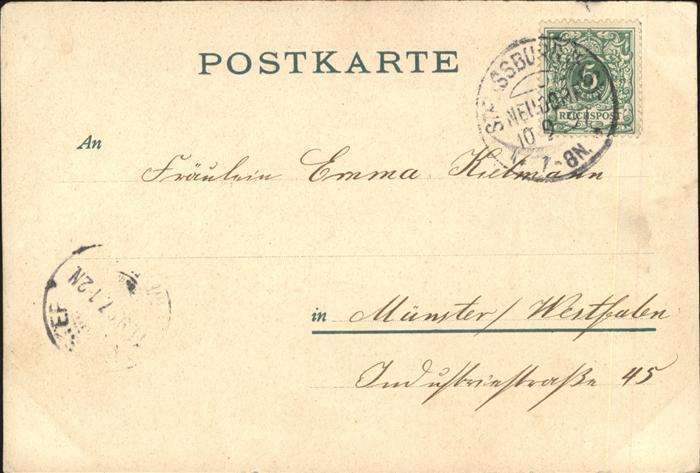 POSTKARTE
5
REICHSPOST
STRASSBURG
NEUDORF
10 9
7-8N.
An
Fräulein Emma Kielmann
in Münster/Westfalen
Industriestraße 45
1-2N